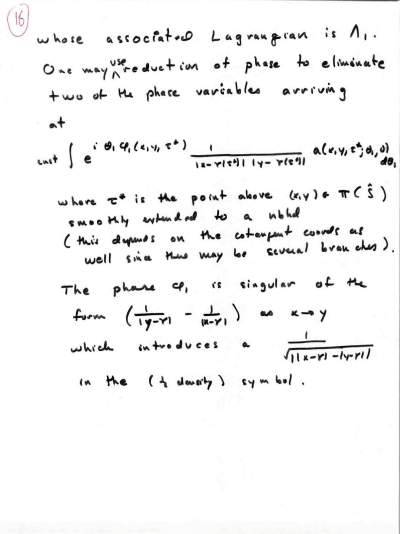 16
whose associated Lagrangian is Λ₁.
One may use reduction of phase to eliminate
two of the phase variables arriving
at
cnst ∫ e^{i θ₁ φ₁(x,y,τ*)} 1/(|x-γ(τ*)| |y-γ(τ*)|) a(x,y,τ*;θ₁,0) dθ₁
where τ* is the point above (x,y) ∈ π(Ŝ)
smoothly extended to a nbhd
(this depends on the cotangent coords as
well since there may be several branches).
The phase φ₁ is singular of the
form (1/|y-γ| - 1/|x-γ|) as x→y
which introduces a 1/√||x-γ|-|y-γ||
in the (½ density) symbol.